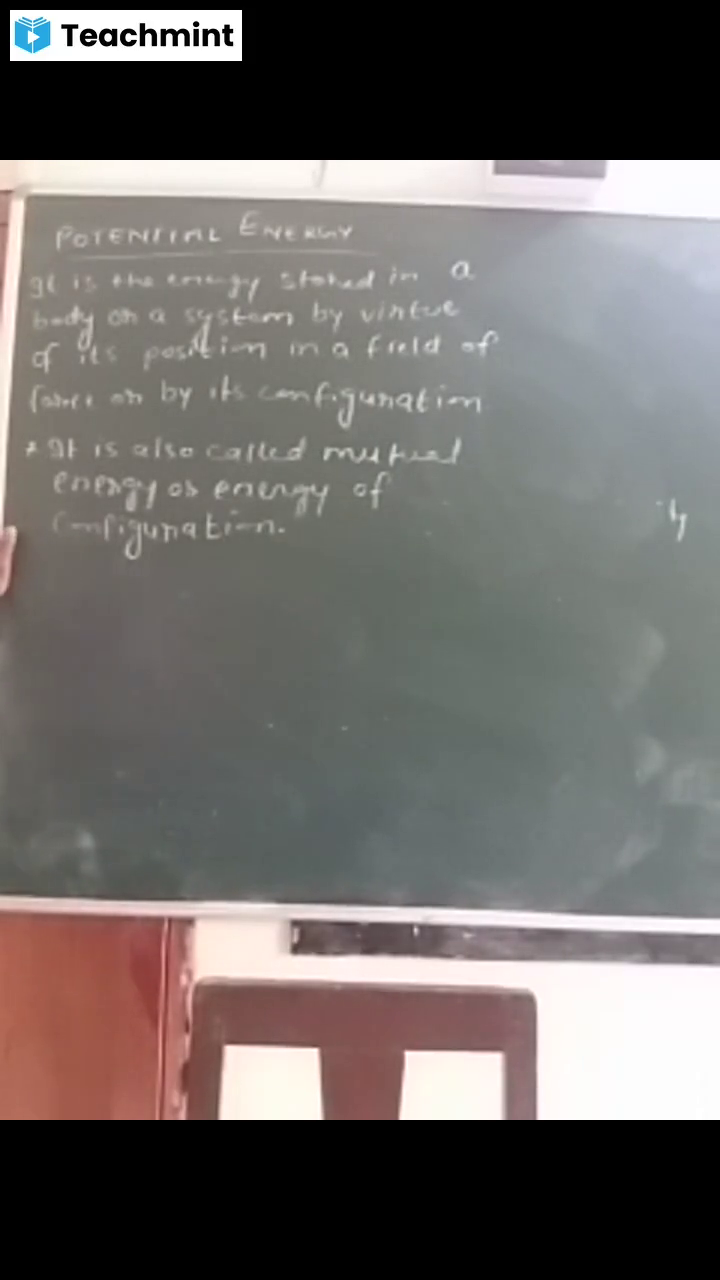 Teachmint
POTENTIAL ENERGY
It is the energy stored in a
body or a system by virtue
of its position in a field of
force or by its configuration
* It is also called mutual
energy or energy of
configuration.